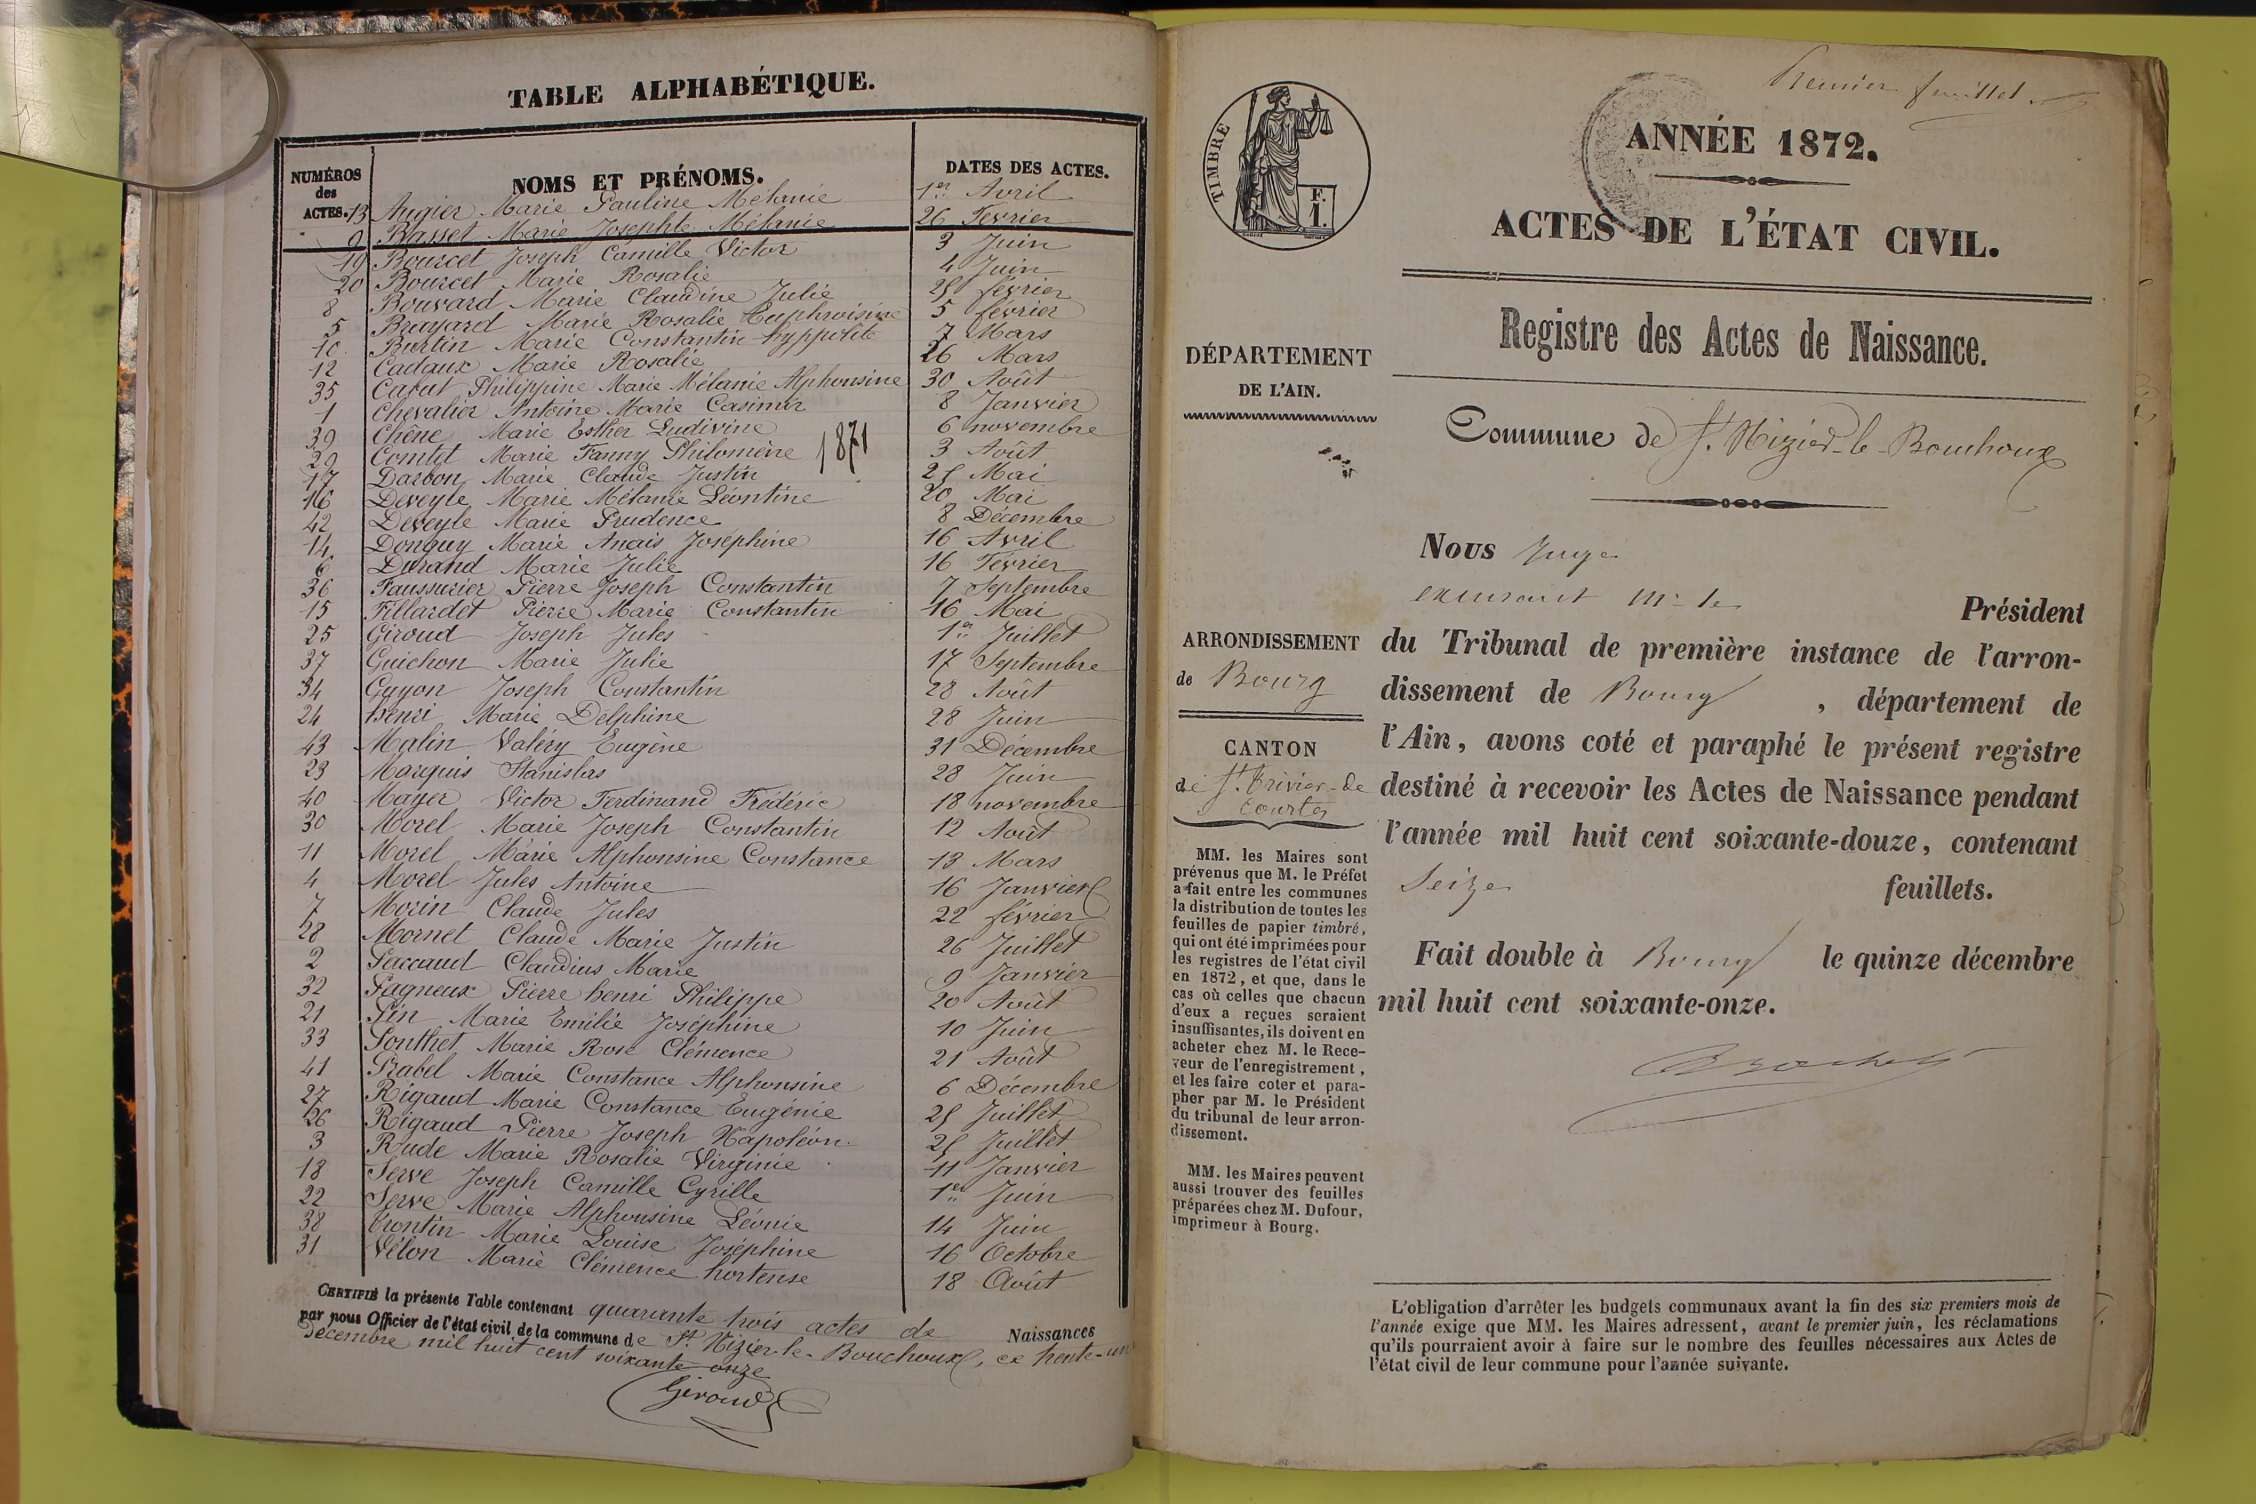 TABLE ALPHABÉTIQUE.
NUMÉROS des ACTES. NOMS ET PRÉNOMS. DATES DES ACTES.
13 Augier Marie Pauline Mélanie 1er Avril
9 Basset Marie Josephte Mélanie 26 Fevrier
19 Bourcet Joseph Camille Victor 3 Juin
20 Bourcet Marie Rosalie 4 Juin
8 Bouvard Marie Claudine Julie 25 février
5 Bruyard Marie Rosalie Euphroisine 5 février
10 Burtin Marie Constantin hyppolite 7 Mars
12 Cadaux Marie Rosalie 26 Mars
35 Carut Philippine Marie Mélanie Alphonsine 30 Août
1 Chevalier Antoine Marie Casimir 8 Janvier
39 Chêne Marie Esther Ludivine 6 novembre
29 Comtet Marie Fanny Philomène 3 Août
1871
17 Darbon Marie Claude Justin 25 Mai
16 Deveyle Marie Mélanie Léontine 20 Mai
42 Deveyle Marie Prudence 8 Décembre
14 Donguy Marie Anais Joséphine 16 Avril
6 Durand Marie Julie 16 Février
36 Faussurier Pierre Joseph Constantin 7 Septembre
15 Fillardet Pierre Marie Constantin 16 Mai
25 Giroud Joseph Jules 1er Juillet
37 Guichon Marie Julie 17 Septembre
34 Guyon Joseph Constantin 28 Août
24 henri Marie Delphine 28 Juin
43 Malin Valéry Eugène 31 Décembre
23 Marquis Stanislas 28 Juin
40 Mayer Victor Ferdinand Frédéric 18 novembre
30 Morel Marie Joseph Constantin 12 Août
11 Morel Marie Alphonsine Constance 13 Mars
4 Morel Jules Antoine 16 Janvier
7 Morin Claude Jules 22 février
28 Mornet Claude Marie Justin 26 Juillet
2 Paccaud Claudius Marie 9 Janvier
32 Pagneux Pierre henri Philippe 20 Août
21 Pin Marie Emilie Joséphine 10 Juin
33 Ponthet Marie Rose Clémence 21 Août
41 Prabel Marie Constance Alphonsine 6 Décembre
27 Rigaud Marie Constance Eugénie 25 Juillet
26 Rigaud Pierre Joseph Napoléon 25 Juillet
3 Rude Marie Rosalie Virginie 11 Janvier
18 Serve Joseph Camille Cyrille 1er Juin
22 Serve Marie Alphonsine Léonie 14 Juin
38 Trontin Marie Louise Joséphine 16 Octobre
31 Vélon Marie Clémence hortense 18 Août
CERTIFIÉ la présente Table contenant quarante trois actes de Naissances
par nous Officier de l'état civil de la commune de St Nizier-le-Bouchoux, ce trente-un
Décembre mil huit cent soixante onze
Giroud
Premier feuillet
TIMBRE
F.
1.
ANNÉE 1872.
ACTES DE L'ÉTAT CIVIL.
Registre des Actes de Naissance.
DÉPARTEMENT
DE L'AIN.
Commune de St Nizier-le-Bouchoux
Nous Juge
excusant Mr le Président
ARRONDISSEMENT
de Bourg
du Tribunal de première instance de l'arron-
dissement de Bourg, département de
l'Ain, avons coté et paraphé le présent registre
destiné à recevoir les Actes de Naissance pendant
l'année mil huit cent soixante-douze, contenant
seize feuillets.
Fait double à Bourg le quinze décembre
mil huit cent soixante-onze.
CANTON
de St Trivier-de
Courtes
MM. les Maires sont
prévenus que M. le Préfet
a fait entre les communes
la distribution de toutes les
feuilles de papier timbré,
qui ont été imprimées pour
les registres de l'état civil
en 1872, et que, dans le
cas où celles que chacun
d'eux a reçues seraient
insuffisantes, ils doivent en
acheter chez M. le Rece-
veur de l'enregistrement,
et les faire coter et para-
pher par M. le Président
du tribunal de leur arron-
dissement.
MM. les Maires peuvent
aussi trouver des feuilles
préparées chez M. Dufour,
imprimeur à Bourg.
L'obligation d'arrêter les budgets communaux avant la fin des six premiers mois de
l'année exige que MM. les Maires adressent, avant le premier juin, les réclamations
qu'ils pourraient avoir à faire sur le nombre des feuilles nécessaires aux Actes de
l'état civil de leur commune pour l'année suivante.